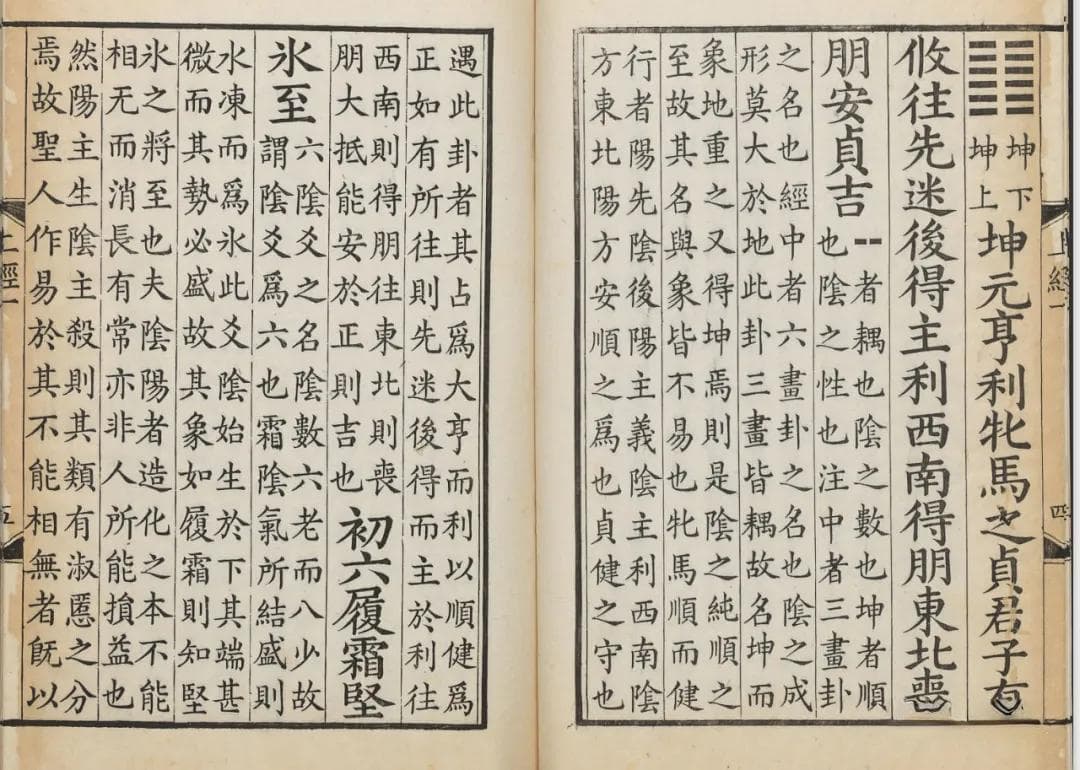 上經一
四
坤下
坤上
坤元亨利牝馬之貞君子有
攸往先迷後得主利西南得朋東北喪
朋安貞吉
⚋者耦也陰之數也坤者順
也陰之性也注中者三畫卦
之名也經中者六畫卦之名也陰之成
形莫大於地此卦三畫皆耦故名坤而
象地重之又得坤焉則是陰之純順之
至故其名與象皆不易也牝馬順而健
行者陽先陰後陽主義陰主利西南陰
方東北陽方安順之爲也貞健之守也
遇此卦者其占爲大亨而利以順健爲
正如有所往則先迷後得而主於利往
西南則得朋往東北則喪
朋大抵能安於正則吉也
初六履霜堅
氷至
六陰爻之名陰數六老而八少故
謂陰爻爲六也霜陰氣所結盛則
水凍而爲氷此爻陰始生於下其端甚
微而其勢必盛故其象如履霜則知堅
氷之將至也夫陰陽者造化之本不能
相无而消長有常亦非人所能損益也
然陽主生陰主殺則其類有淑慝之分
焉故聖人作易於其不能相無者旣以
上經一
五